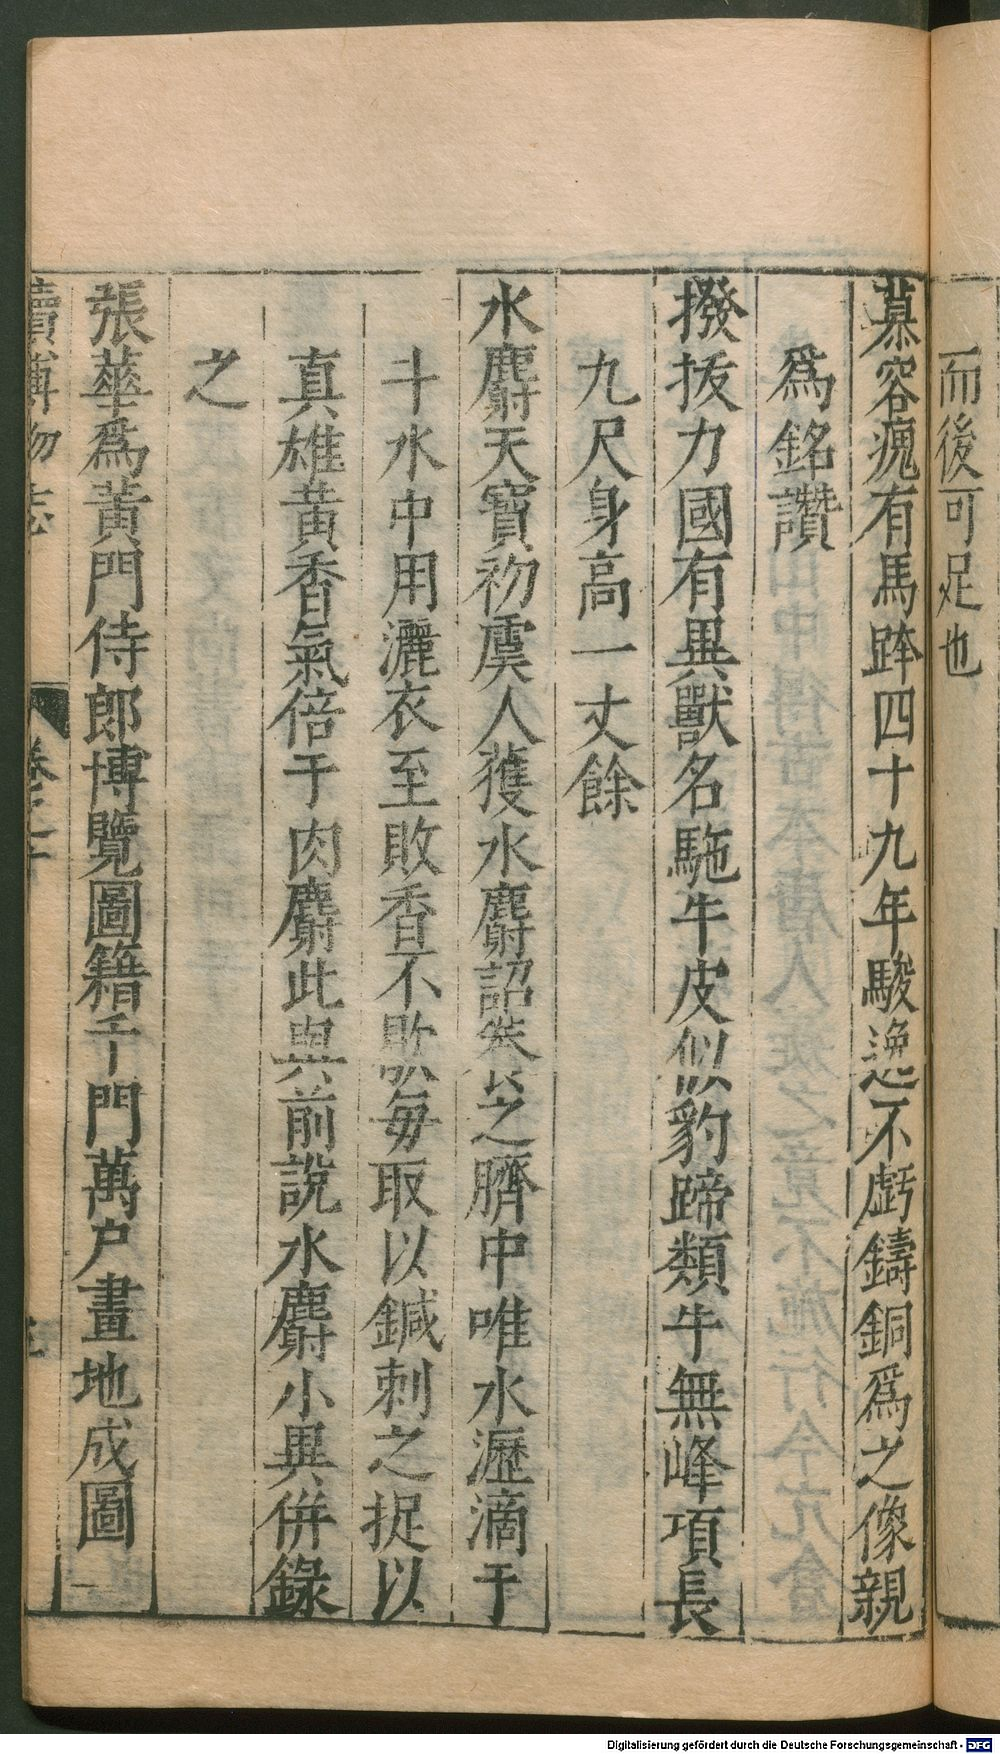 而後可足也
慕容瘣有馬跸四十九年駿逸不虧鑄銅爲之像親
爲銘讚
撥拔力國有異獸名駞牛皮似豹蹄類牛無峰項長
九尺身高一丈餘
水麝天寶初虞人獲水麝詔養之臍中唯水瀝滴于
斗水中用灑衣至敗香不歇每取以鍼刺之捉以
真雄黃香氣倍于肉麝此與前說水麝小異併錄
之
張華爲黃門侍郎博覽圖籍千門萬户畫地成圖
續博物志
卷之十
Digitalisierung gefördert durch die Deutsche Forschungsgemeinschaft - DFG